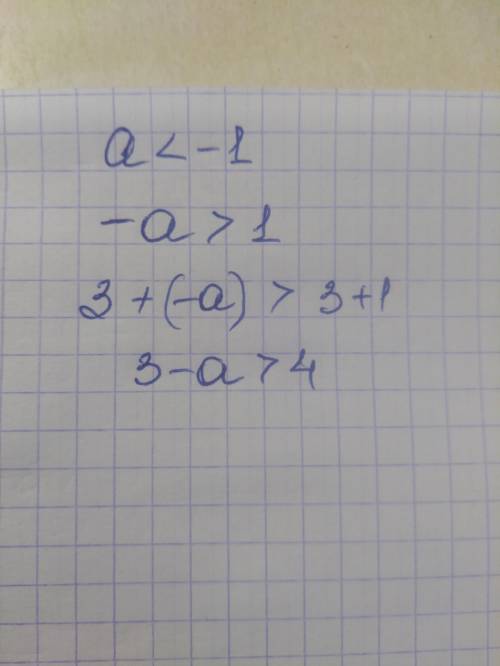 a < -1
-a > 1
3 + (-a) > 3+1
3-a > 4